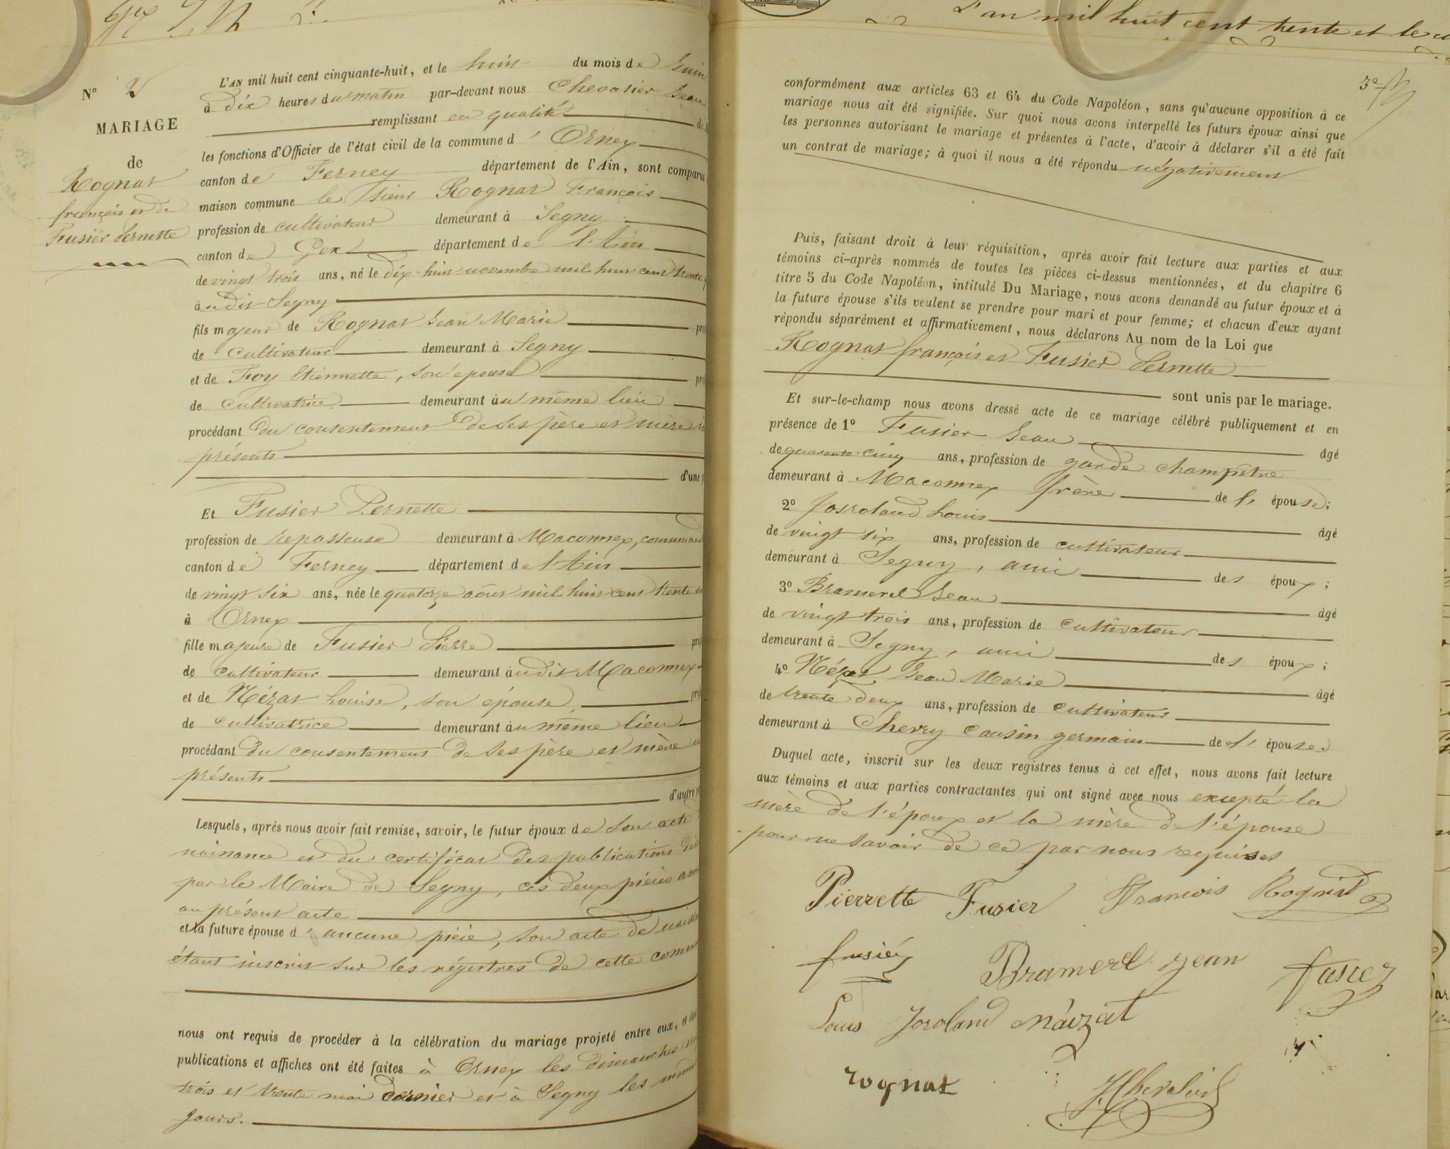 L'an mil huit cent trente et le
N° 2
MARIAGE
de
Rognat
françois et de
Fusier Pernette
L'AN mil huit cent cinquante-huit, et le huit du mois de Juin
à dix heures du matin par-devant nous Chevalier Jean
remplissant en qualité
les fonctions d'Officier de l'état civil de la commune d'Ornex
canton de Ferney département de l'Ain, sont comparus
maison commune le sieur Rognat François
profession de cultivateur demeurant à Segny
canton de Gex département de l'Ain
de vingt trois ans, né le dix huit novembre mil huit cent trente
à u dit Segny
fils majeur de Rognat Jean Marie
de cultivateur demeurant à Segny
et de Foy Etiennette, son épouse
de cultivatrice demeurant à u même lieu
procédant du consentement de ses père et mère
présents
d'une
Et Fusier Pernette
profession de repasseuse demeurant à Maconnex, commune
canton de Ferney département de l'Ain
de vingt six ans, née le quatorze août mil huit cent trente
à Ornex
fille majeure de Fusier Pierre
de cultivateur demeurant à u dit Maconnex
et de Nézat Louise, son épouse
de cultivatrice demeurant à u même lieu
procédant du consentement de ses père et mère
présents
d'autre
Lesquels, après nous avoir fait remise, savoir, le futur époux de son acte
naissance et du certificat des publications
par le Maire de Segny, ces deux pièces
au présent acte
et la future épouse d'aucune pièce, son acte de
étant inscrit sur les régistres de cette commune
nous ont requis de procéder à la célébration du mariage projeté entre eux,
publications et affiches ont été faites à Ornex les dimanches
trois et trente mai dernier et à Segny les mêmes
jours.
conformément aux articles 63 et 64 du Code Napoléon, sans qu'aucune opposition à ce
mariage nous ait été signifiée. Sur quoi nous avons interpellé les futurs époux ainsi que
les personnes autorisant le mariage et présentes à l'acte, d'avoir à déclarer s'il a été fait
un contrat de mariage; à quoi il nous a été répondu négativement
Puis, faisant droit à leur réquisition, après avoir fait lecture aux parties et aux
témoins ci-après nommés de toutes les pièces ci-dessus mentionnées, et du chapitre 6
titre 5 du Code Napoléon, intitulé Du Mariage, nous avons demandé au futur époux et à
la future épouse s'ils veulent se prendre pour mari et pour femme; et chacun d'eux ayant
répondu séparément et affirmativement, nous déclarons Au nom de la Loi que
Rognat françois et Fusier Pernette
sont unis par le mariage.
Et sur-le-champ nous avons dressé acte de ce mariage célébré publiquement et en
présence de 1° Fusier Jean âgé
de quarante-cinq ans, profession de garde champêtre
demeurant à Maconnex frère de l'épouse;
2° Josroland Louis âgé
de vingt six ans, profession de cultivateur
demeurant à Segny, ami des époux;
3° Bramerel Jean âgé
de vingt trois ans, profession de cultivateur
demeurant à Segny, ami des époux;
4° Nézat Jean Marie âgé
de trente deux ans, profession de cultivateur
demeurant à Chevry cousin germain de l'épouse
Duquel acte, inscrit sur les deux registres tenus à cet effet, nous avons fait lecture
aux témoins et aux parties contractantes qui ont signé avec nous excepté la
mère de l'époux et la mère de l'épouse
pour ne savoir de ce par nous requises
Pierrette Fusier François Rognat
fusier Bramerel jean fusier
Louis Joroland naizat
rognat J Chevalier